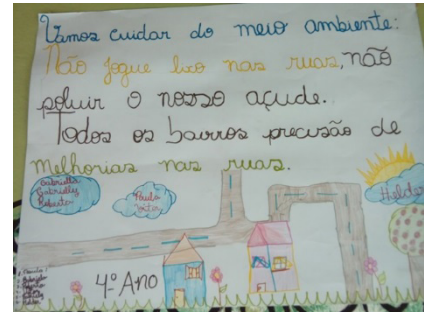 Vamos cuidar do meio ambiente:
Não jogue lixo nas ruas, não
poluir o nosso açude.
Todos os bairros precisão de
melhorias nas ruas.
Gabriella
Gabrielly
Rebeca
Paulo
Helder
4º Ano